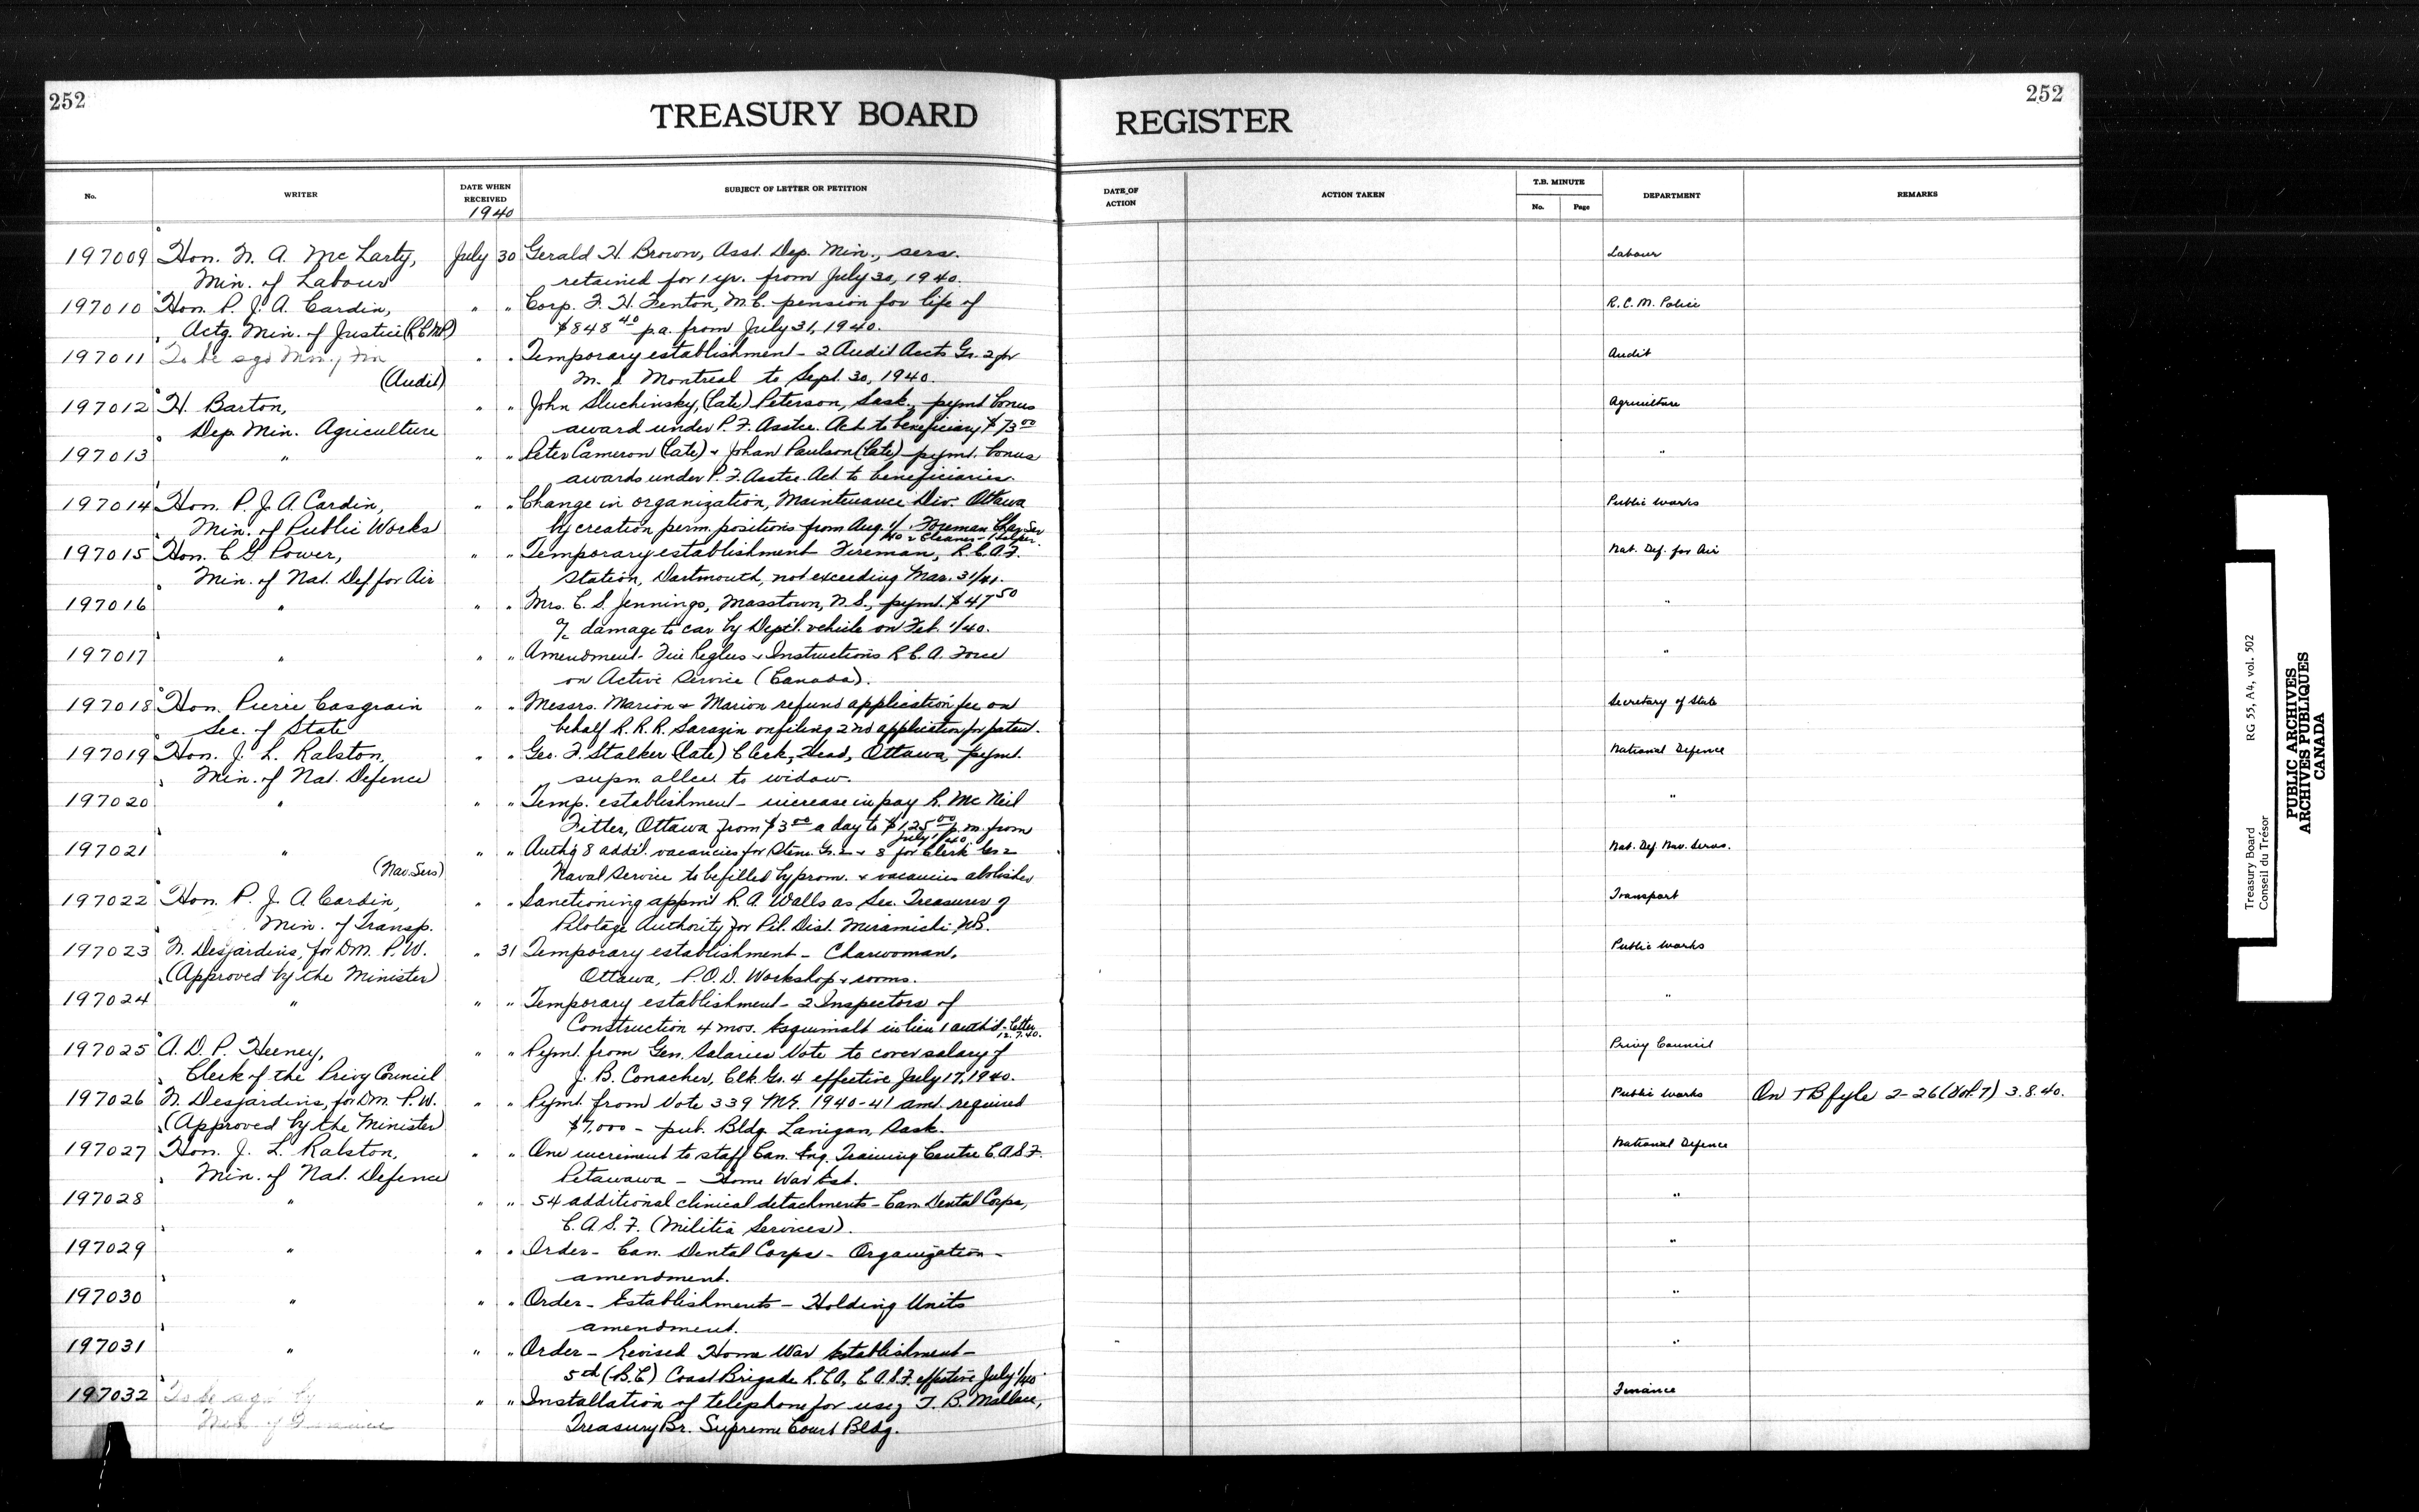 252
TREASURY BOARD
REGISTER
252
No.
WRITER
DATE WHEN RECEIVED
1940
SUBJECT OF LETTER OR PETITION
DATE OF ACTION
ACTION TAKEN
T.B. MINUTE
No.
Page
DEPARTMENT
REMARKS
197009 Hon. N. A. Mc Larty, July 30 Gerald H. Brown, Asst. Dep. Min., sers. Labour
Min. of Labour retained for 1 yr. from July 30, 1940.
197010 Hon. P. J. A. Cardin, " " Corp. F. H. Fenton, M.C. pension for life of R.C.M. Police
Actg. Min. of Justice (RCMP) $848 40 p.a. from July 31, 1940.
197011 To be sgd Min. of Fin " " Temporary establishment - 2 Audit Accts Gr. 2 for Audit
(Audit) M. S. Montreal to Sept. 30, 1940.
197012 H. Barton, " " John Sluchinsky, (late) Peterson, Sask., pymt bonus Agriculture
Dep. Min. Agriculture award under P. F. Asstce. Act to beneficiary $73 00
197013 " " " Peter Cameron (late) & Johan Paulson (late) pymt. bonus "
awards under P. F. Asstce. Act to beneficiaries.
197014 Hon. P. J. A. Cardin, " " Change in organization, Maintenance Div. Ottawa Public Works
Min. of Public Works by creation perm. positions from Aug. 1/40 Foreman Char Ser
& Cleaner - Helper.
197015 Hon. C. G. Power, " " Temporary establishment Fireman, R.C.A.F. Nat. Def. for Air
Min. of Nat. Def. for Air Station, Dartmouth, not exceeding Mar. 31/41.
197016 " " " Mrs. C. S. Jennings, Masstown, N.S., pymt. $47 50 "
a/c damage to car by Dept'l. vehicle on Feb. 1/40.
197017 " " " Amendment - Fin Reglns & Instructions R.C.A. Force "
on Active Service (Canada).
197018 Hon. Pierre Casgrain " " Messrs. Marion & Marion refund application fee on Secretary of State
Sec. of State behalf R. R. R. Sarazin on filing 2nd application for patent.
197019 Hon. J. L. Ralston, " " Geo. F. Stalker (late) Clerk, Head, Ottawa, pymt. National Defence
Min. of Nat. Defence supn. allce to widow.
197020 " " " Temp. establishment - increase in pay R. Mc Neil "
Fitter, Ottawa from $3 00 a day to $125 00 p.m. from
July 1/40
197021 " " " Authg 8 addl. vacancies for Steno. Gr. 2 & 8 for Clerk Gr 2 Nat. Def. Nav. Servs.
(Nav. Sers) Naval Service to be filled by prom. & vacancies abolished
197022 Hon. P. J. A Cardin, " " Sanctioning appmt R. A. Walls as Sec. Treasurer of Transport
Min. of Transp. Pilotage Authority for Pil. Dist. Miramichi, NB.
197023 N. Desjardins, for DM. P.W. " 31 Temporary establishment - Charwoman, Public Works
(Approved by the Minister) Ottawa, P.O.D. Workshop & rooms.
197024 " " " Temporary establishment - 2 Inspectors of "
Construction 4 mos. Esquimalt in lieu 1 auth'd - letter
12.7.40.
197025 A. D. P. Heeney, " " Pymt. from Gen. Salaries Vote to cover salary of Privy Council
Clerk of the Privy Council J. B. Conacher, Clk. Gr. 4 effective July 17, 1940.
197026 N. Desjardins, for DM. P.W. " " Pymt. from Vote 339 ME. 1940-41 amt. required Public Works On TB fyle 2-26 (Vol. 7) 3.8.40.
(Approved by the Minister) $7,000 - pub. Bldg. Lanigan, Sask.
197027 Hon. J. L. Ralston, " " One increment to staff Can. Eng. Training Centre C.A.S.F. National Defence
Min. of Nat. Defence Petawawa - Home War Est.
197028 " " " 54 additional clinical detachments - Can. Dental Corps, "
C.A.S.F. (Militia Services).
197029 " " " Order - Can. Dental Corps - Organization - "
amendment.
197030 " " " Order - Establishments - Holding Units "
amendment.
197031 " " " Order - Revised Home War Establishment - "
5th (B.C.) Coast Brigade R.C.A., C.A.S.F. effective July 1/40
197032 To be sgd by " " Installation of telephone for use of T. B. Wallace, Finance
Min. of Finance Treasury Br. Supreme Court Bldg.
Treasury Board
Conseil du Trésor
RG 55, A4, vol. 502
PUBLIC ARCHIVES
ARCHIVES PUBLIQUES
CANADA